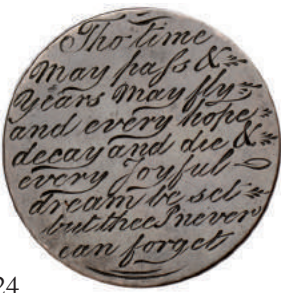 Tho time
May pass &
Years May fly
and every hope
decay and die &
every Joyful
dream be set
but thee I never
can forget
24